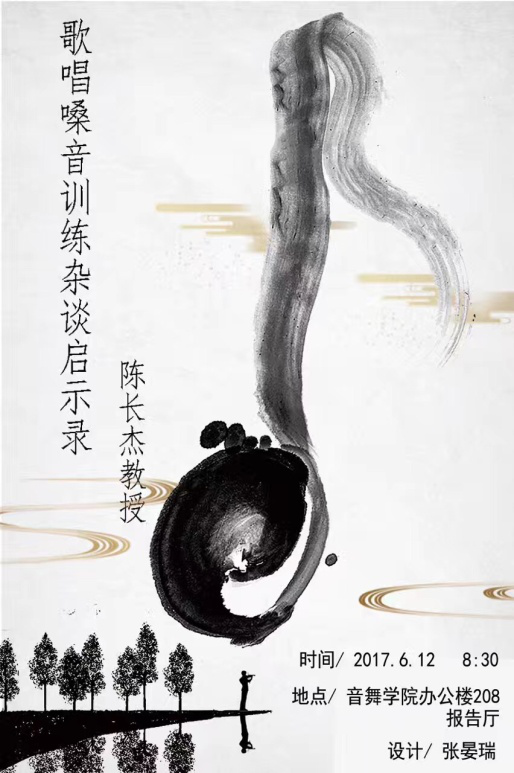 歌唱嗓音训练杂谈启示录
陈长杰教授
时间/ 2017.6.12 8:30
地点/ 音舞学院办公楼208
报告厅
设计/ 张晏瑞